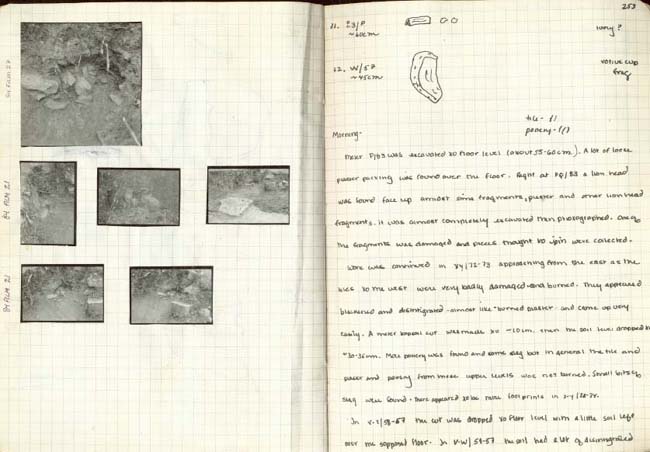 84 FILM 21
84 FILM 21
253
11. Z3/P
~60cm
ivory?
12. W/57
~45cm
votive cup
frag
tile -
pottery -
Morning-
Meter was excavated to floor level (about 55-60cm). A lot of loose
plaster packing was found over the floor. Right at a lion head
was found face up amidst some fragments, plaster and other lion head
fragments. It was almost completely excavated then photographed. One of
the fragments was damaged and pieces thought to join were collected.
Work was continued in approaching from the east as the
tiles to the west were very badly damaged and burned. They appeared
blackened and disintigrated - almost like burned plaster - and come up very
easily. A meter cut was made to ~10cm. Then the soil level dropped to
~30-35cm. More pottery was found and some slag but in general the tile and
plaster and pottery from these upper levels was not burned. Small bits of
slag were found. There appeared to be more foot prints in
In the cut was dropped to floor level with a little soil left
over the supposed floor. In V-W/56-57 the soil had a lot of disintigrated